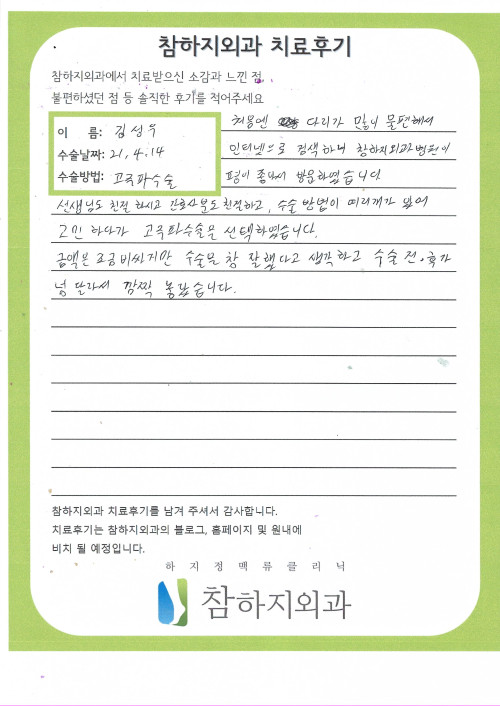 참하지외과 치료후기
참하지외과에서 치료받으신 소감과 느낀 점,
불편하셨던 점 등 솔직한 후기를 적어주세요
이 름: 김성우
수술날짜: 21. 4. 14
수술방법: 고주파수술
처음엔 다리가 많이 불편해서
인터넷으로 검색하니 참하지외과병원이
평이 좋아서 방문하였습니다
선생님도 친절하시고 간호사분도 친절하고, 수술 방법이 여러개가 있어
고민 하다가 고주파수술을 선택하였습니다.
금액은 조금 비싸지만 수술을 참 잘했다고 생각하고 수술 전·후가
넘 달라서 깜짝 놀랐습니다.
참하지외과 치료후기를 남겨 주셔서 감사합니다.
치료후기는 참하지외과의 블로그, 홈페이지 및 원내에
비치 될 예정입니다.
하지정맥류클리닉
참하지외과